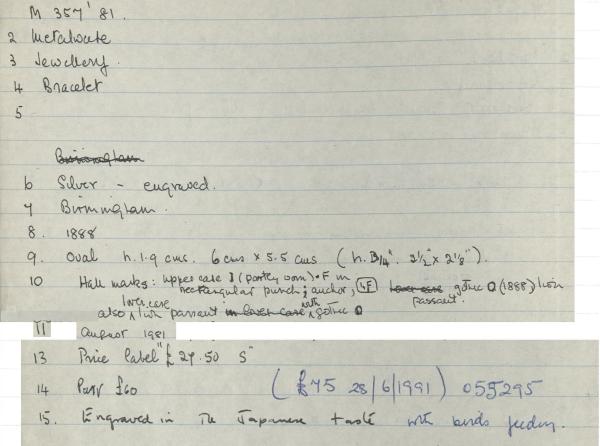 M 357' 81.
2 Metalwork
3 Jewellery.
4 Bracelet
5
Birmingham
6 Silver - engraved.
7 Birmingham.
8. 1888
9. Oval h. 1.9 cms. 6 cms x 5.5 cms (h. 3/4". 2 1/2" x 2 1/8").
10 Hall marks: upper case J (partly worn) . F in
rectangular punch; anchor, lower case gothic (1888) lion
passant.
lower case with
also lion passant in lower case gothic
11 August 1981
13 Price label "£29.50 S"
14 £60 (£75 28/6/1991) 055295
15. Engraved in the Japanese taste with birds feeding.